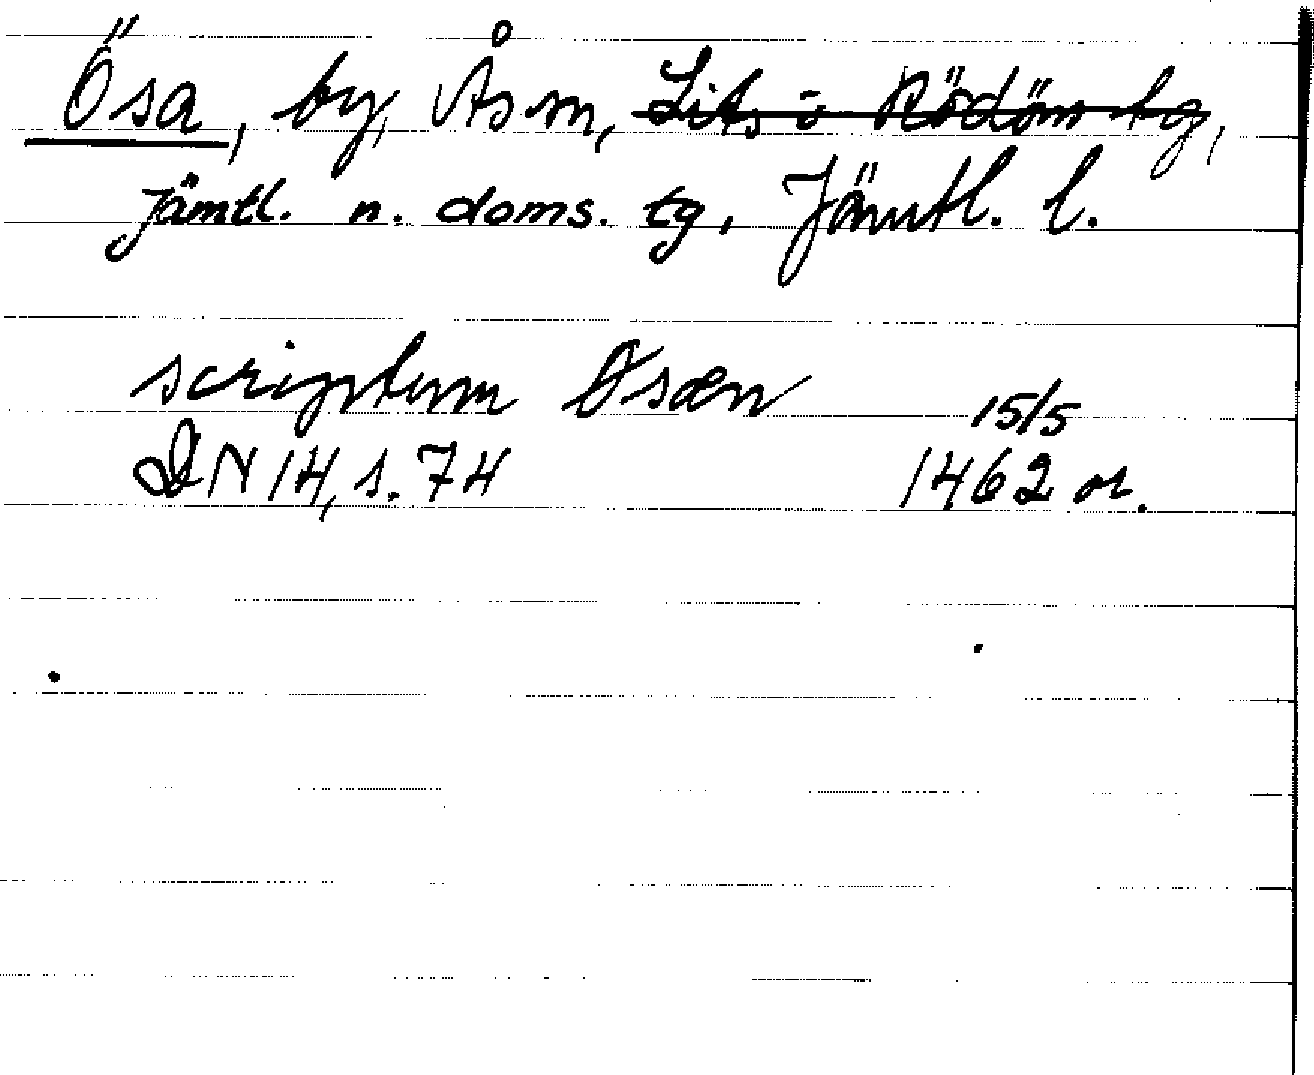 Ösa, by, Ås sn, Lits o Rödöns tg,
Jämtl. n. doms. tg, Jämtl. l.
scriptum Øsæn 15/5
DN 14, s. 74 1462 or.